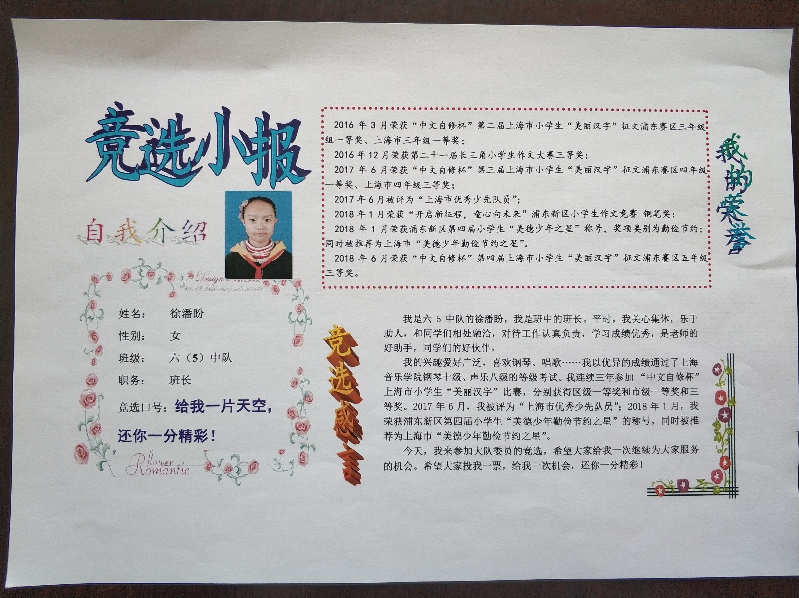 竞选小报
自我介绍
姓名： 徐潘盼
性别： 女
班级： 六（5）中队
职务： 班长
竞选口号：给我一片天空，
还你一分精彩！
Romantic
2016 年 3 月荣获“中文自修杯”第二届上海市小学生“美丽汉字”征文浦东赛区三年级
组一等奖、上海市三年级一等奖；
2016 年 12 月荣获第二十一届长三角小学生作文大赛三等奖；
2017 年 6 月荣获“中文自修杯”第三届上海市小学生“美丽汉字”征文浦东赛区四年级
一等奖、上海市四年级三等奖；
2017 年 6 月被评为“上海市优秀少先队员”；
2018 年 1 月荣获“开启新征程，童心向未来”浦东新区小学生作文竞赛 铜笔奖；
2018 年 1 月荣获浦东新区第四届小学生“美德少年之星”称号，奖项类别为勤俭节约；
同时被推荐为上海市“美德少年勤俭节约之星”。
2018 年 6 月荣获“中文自修杯”第四届上海市小学生“美丽汉字”征文浦东赛区五年级
三等奖。
我的荣誉
竞选感言
我是六 5 中队的徐潘盼，我是班中的班长，平时，我关心集体，乐于
助人，和同学们相处融洽，对待工作认真负责，学习成绩优秀，是老师的
好助手，同学们的好伙伴。
我的兴趣爱好广泛，喜欢钢琴、唱歌……我以优异的成绩通过了上海
音乐学院钢琴十级、声乐八级的等级考试。我连续三年参加 “中文自修杯”
上海市小学生“美丽汉字”比赛，分别获得区级一等奖和市级一等奖和三
等奖。2017 年 6 月，我被评为“上海市优秀少先队员”；2018 年 1 月，我
荣获浦东新区第四届小学生“美德少年勤俭节约之星”的称号，同时被推
荐为上海市“美德少年勤俭节约之星”。
今天，我来参加大队委员的竞选，希望大家给我一次继续为大家服务
的机会。希望大家投我一票，给我一次机会，还你一分精彩！